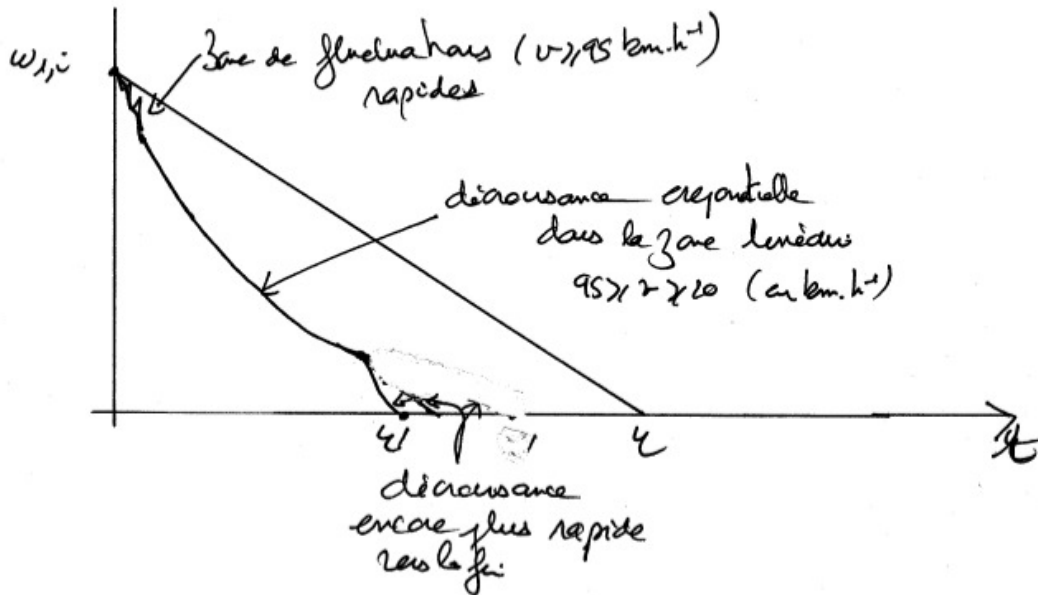 ω₁,ᵢ
Zone de fluctuations (v ⩾ 95 km.h⁻¹)
rapides
décroissance exponentielle
dans la zone linéaire
95 ⩾ v ⩾ 20 (en km.h⁻¹)
t
décroissance
encore plus rapide
vers la fin